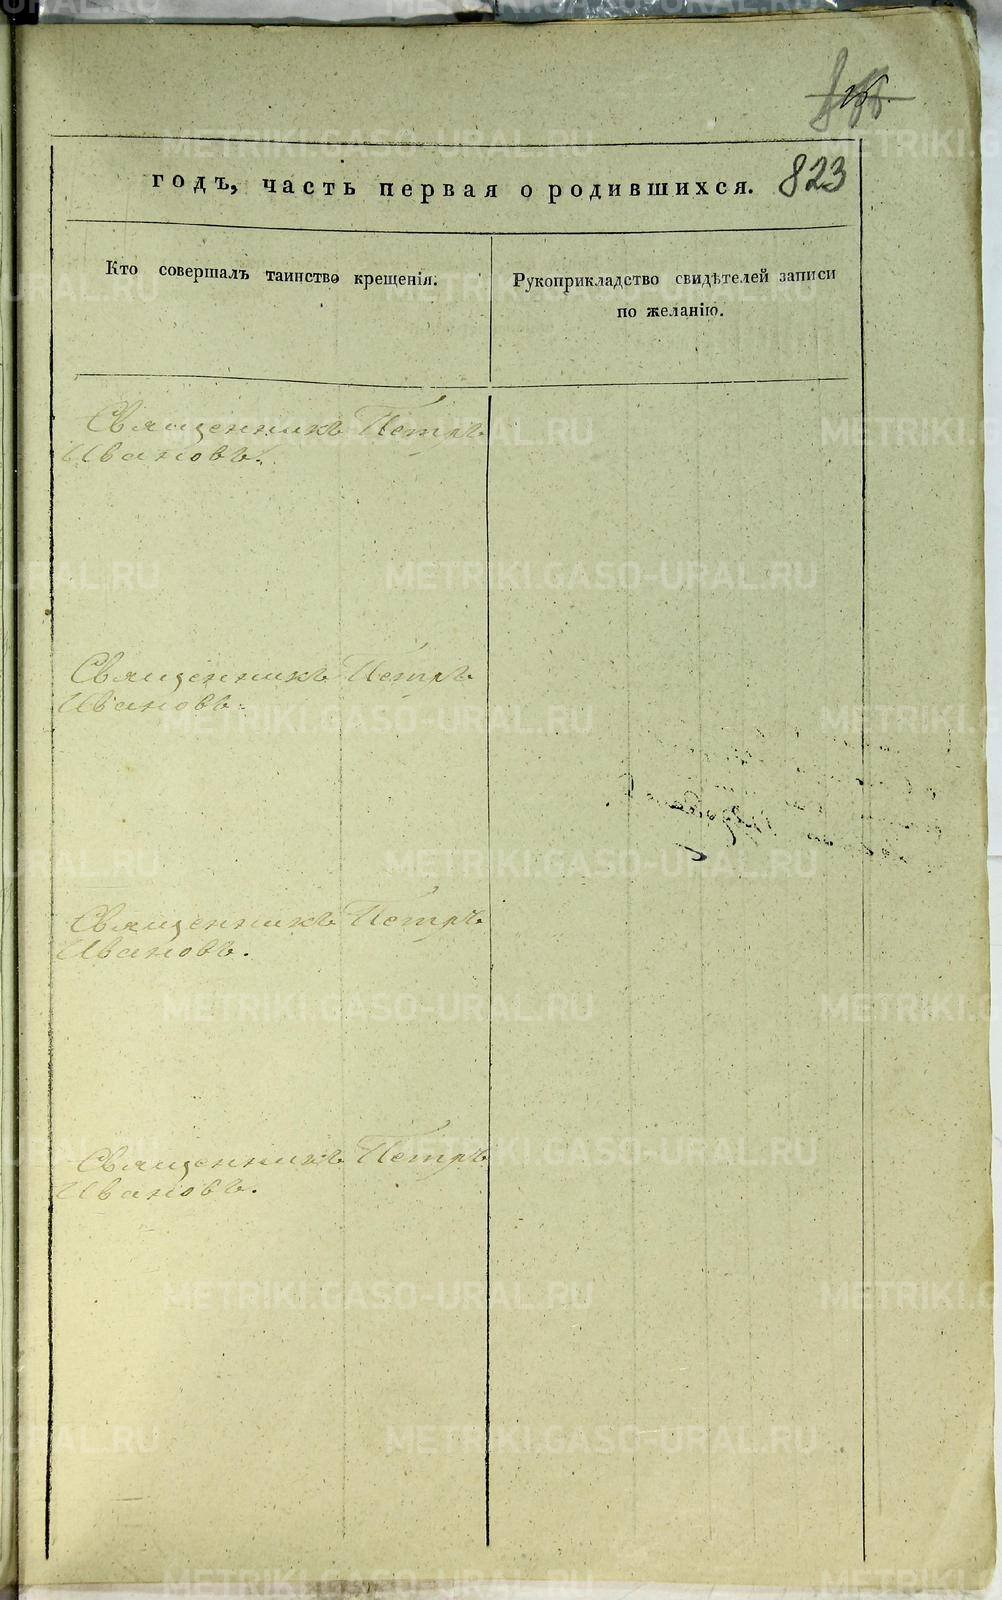 823
годъ, часть первая о родившихся.
Кто совершалъ таинство крещенія.
Рукоприкладство свидѣтелей записи
по желанію.
Священникъ Петръ
Ивановъ.
Священникъ Петръ
Ивановъ.
Священникъ Петръ
Ивановъ.
Священникъ Петръ
Ивановъ.
METRIKI.GASO-URAL.RU